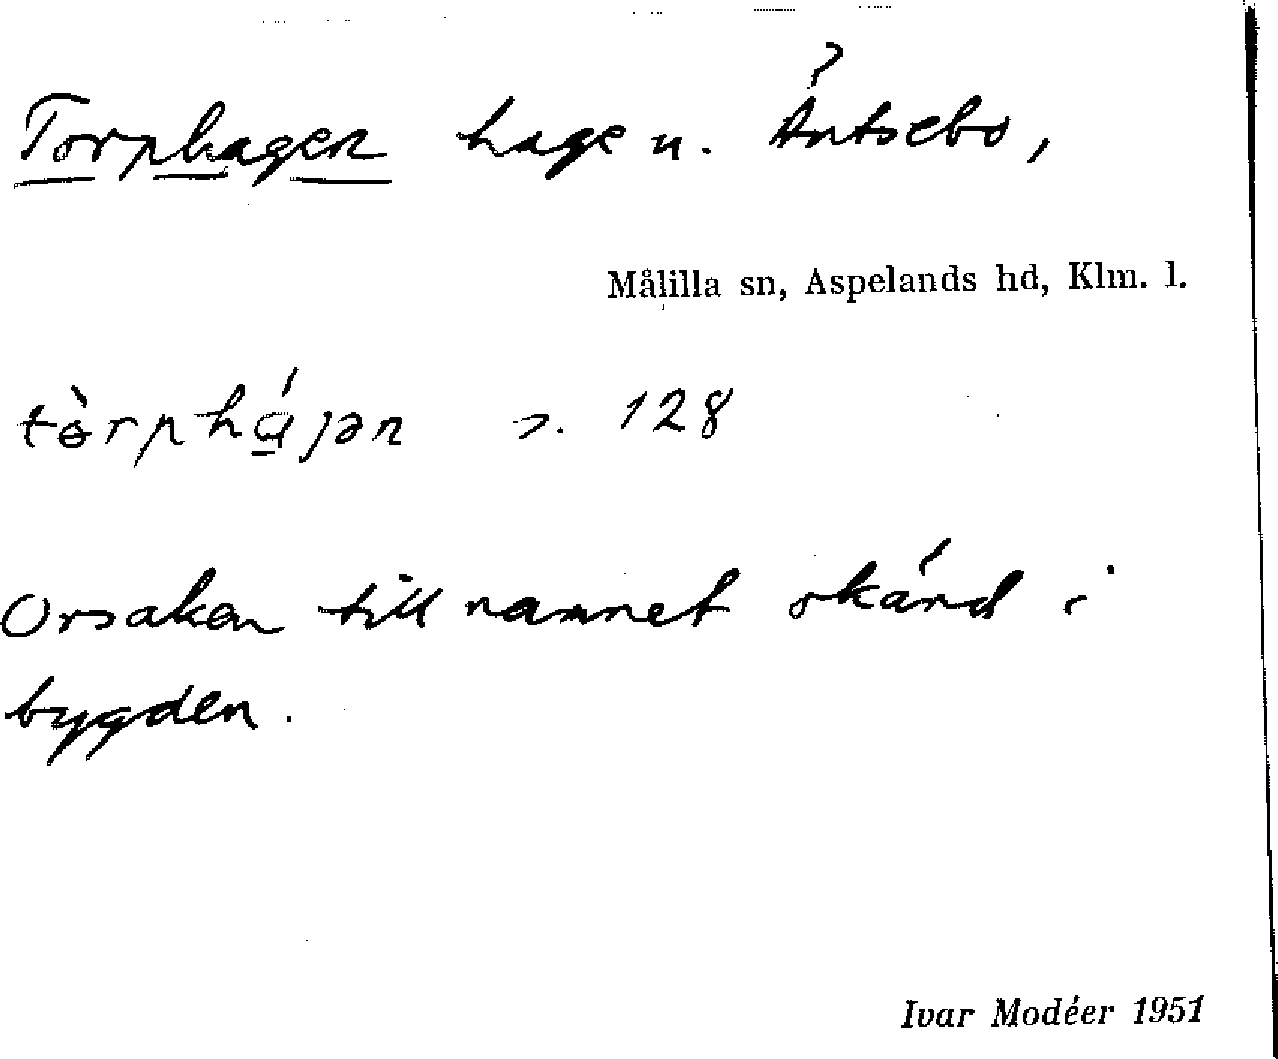 Torphagen hage u. Åntsebo,
Målilla sn, Aspelands hd, Klm. l.
tèrphájən s. 128
Orsaken till namnet okänd i
bygden.
Ivar Modéer 1951